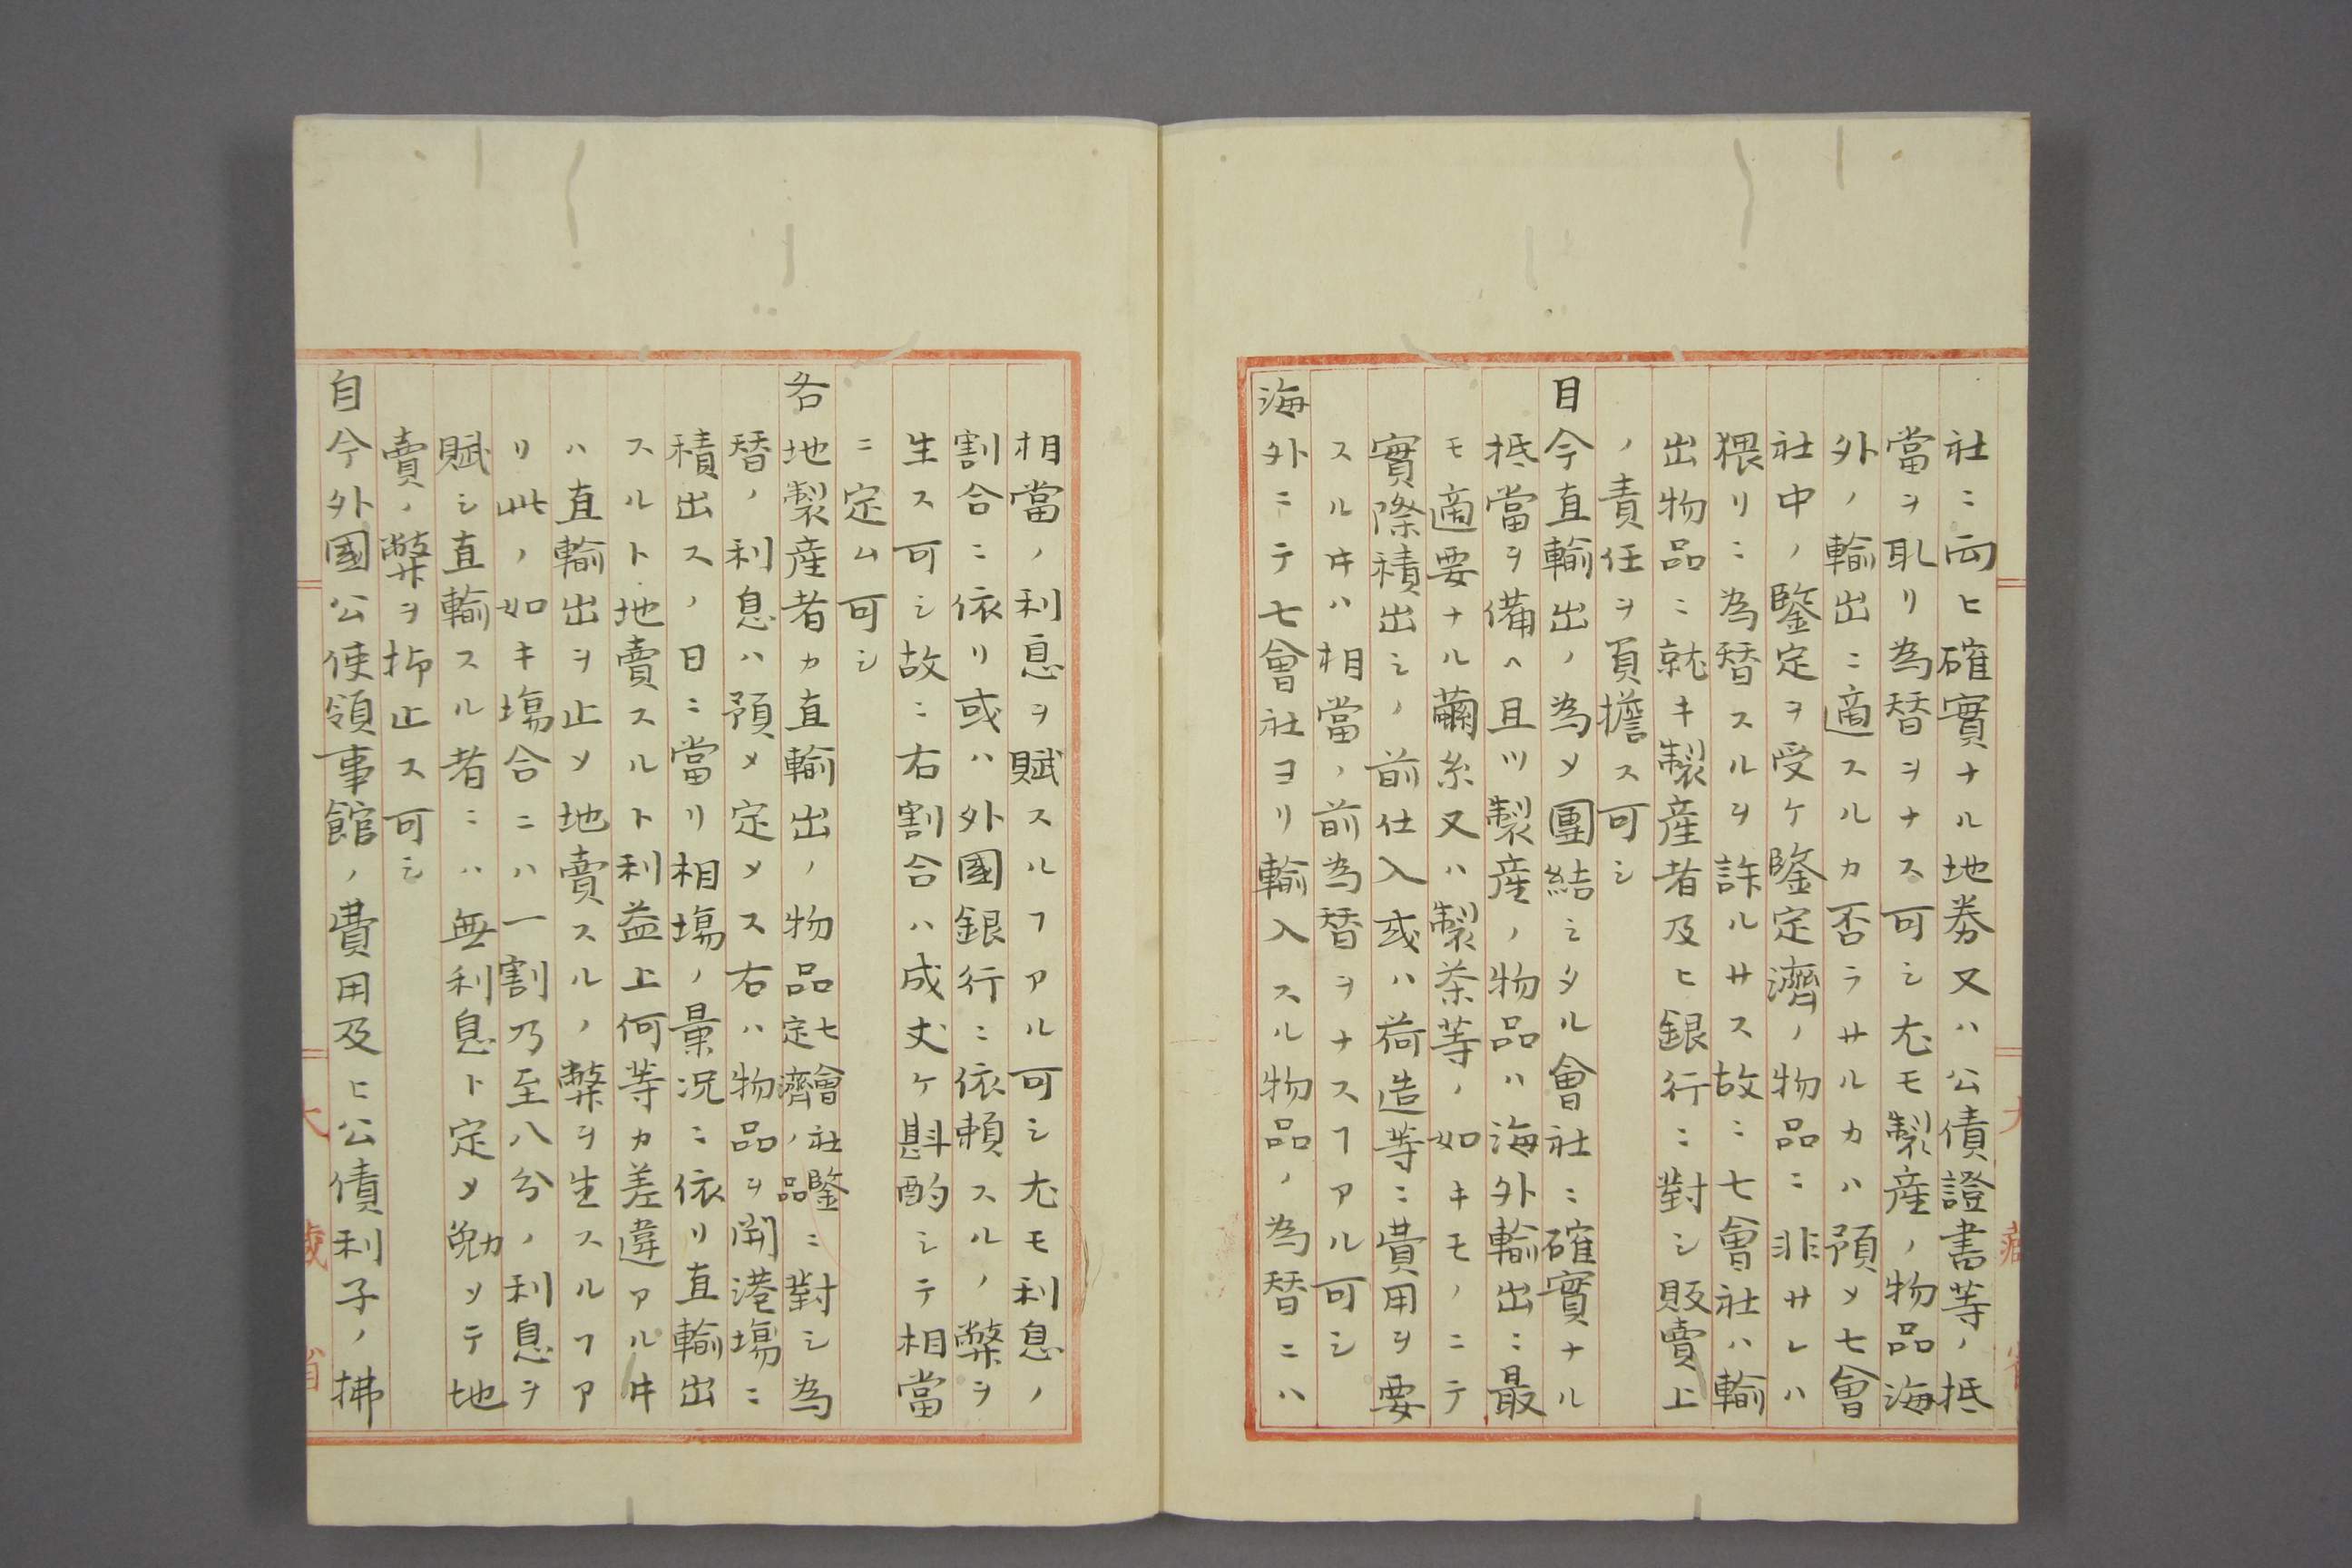 社ニ両ヒ確實ナル地券又ハ公債證書等ノ抵
當ヲ取リ為替ヲナス可シ尤モ製産ノ物品海
外ノ輸出ニ適スルカ否ラサルカハ預メ七會
社中ノ鑒定ヲ受ケ鑒定濟ノ物品ニ非サレハ
猥リニ為替スルヲ許ルサス故ニ七會社ハ輸
出物品ニ就キ製産者及ヒ銀行ニ對シ販賣上
ノ責任ヲ負擔ス可シ
目今直輸出ノ為メ團結シタル會社ニ確實ナル
抵當ヲ備ヘ且ツ製産ノ物品ハ海外輸出ニ最
モ適要ナル繭糸又ハ製茶等ノ如キモノニテ
實際積出シノ前仕入或ハ荷造等ニ費用ヲ要
スル𪜈ハ相當ノ前為替ヲナスヿアル可シ
海外ニテ七會社ヨリ輸入スル物品ノ為替ニハ
相當ノ利息ヲ賦スルヿアル可シ尤モ利息ノ
割合ニ依リ或ハ外國銀行ニ依頼スルノ弊ヲ
生ス可シ故ニ右割合ハ成丈ケ斟酌シテ相當
ニ定ム可シ
各地製産者カ直輸出ノ物品七會社鑒定濟ノ品ニ對シ為
替ノ利息ハ預メ定メス右ハ物品ヲ開港場ニ
積出スノ日ニ當リ相場ノ景況ニ依リ直輸出
スルト地賣スルト利益上何等カ差違アル井
ハ直輸出ヲ止メ地賣スルノ弊ヲ生スルヿア
リ此ノ如キ場合ニハ一割乃至八分ノ利息ヲ
賦シ直輸スル者ニハ無利息ト定メ勉メテ地
賣ノ弊ヲ抑止ス可シ
自今外國公使領事館ノ費用及ヒ公債利子ノ拂
大藏省